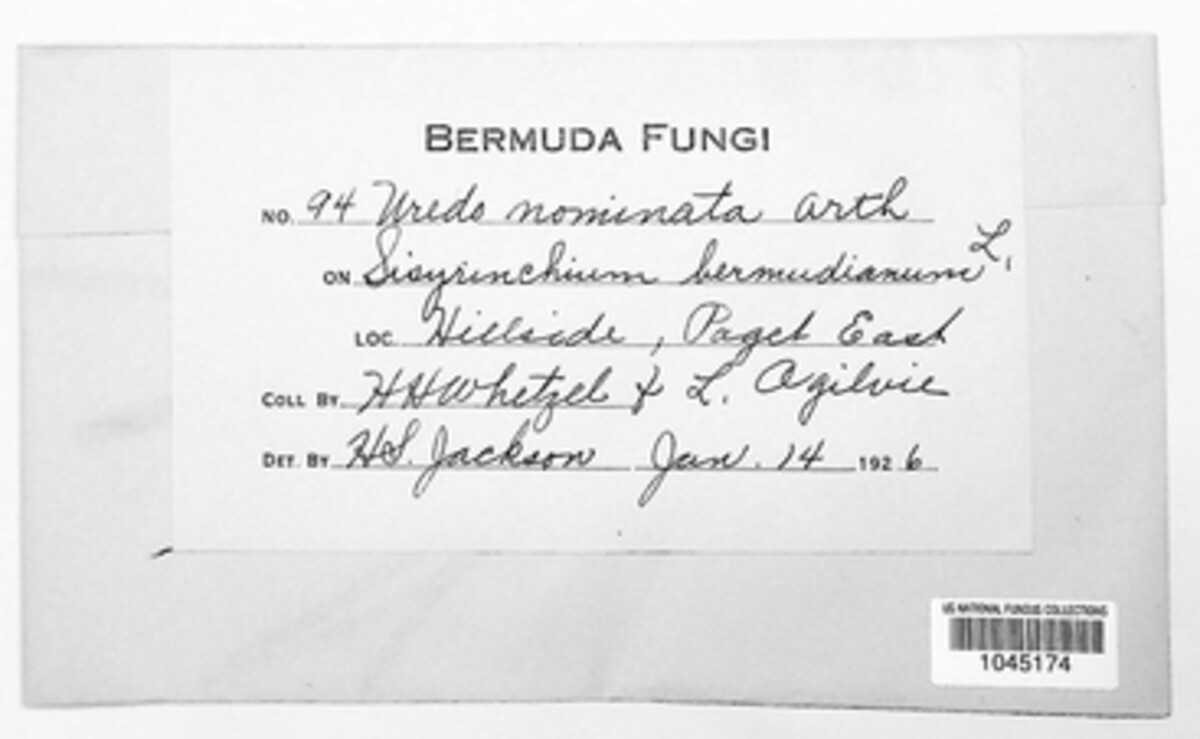 BERMUDA FUNGI
NO. 94 Uredo nominata Arth
ON Sisyrinchium bermudianum L.
LOC. Hillside, Paget East
COLL BY HHWhetzel & L. Ogilvie
DET. BY H.S. Jackson Jan. 14 1926
US NATIONAL FUNGUS COLLECTIONS
1045174